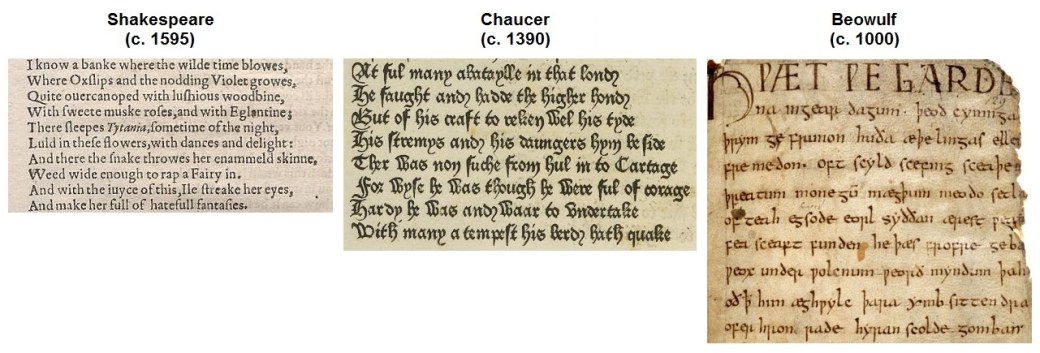 Shakespeare
(c. 1595)
I know a banke where the wilde time blowes,
Where Oxſlips and the nodding Violet growes,
Quite ouercanoped with luſhious woodbine,
With ſweete muske roſes, and with Eglantine;
There ſleepes Tytania, ſometime of the night,
Luld in theſe flowers, with dances and delight:
And there the ſnake throwes her enammeld skinne,
Weed wide enough to rap a Fairy in.
And with the iuyce of this, Ile ſtreake her eyes,
And make her full of hatefull fantaſies.
Chaucer
(c. 1390)
At ful many a bataylle in that lond
He faught and hadde the higher hond
But of his craft to reken wel his tyde
His stremys and his daungers hym be side
Ther was non suche from hul in to Cartage
For wyse he was though he were ful of corage
Hardy he was and waar to vndertake
With many a tempest his berd hath quake
Beowulf
(c. 1000)
HǷÆT ǷE GARDE
na ingear dagum. þeod cyninga
þrym ge frunon huða æþelingas elle
fre medon. oft scyld scefing sceaþe
þreatum monegū mægþum meodo setla
of teah egsode eorl syððan ærest
fea sceaft funden he þæs frofre geba
ƿeox under ƿolcnum ƿeorð myndum þah
oðþ him æghƿylc þara ymb sittendra
ofer hron rade hyran scolde gomban